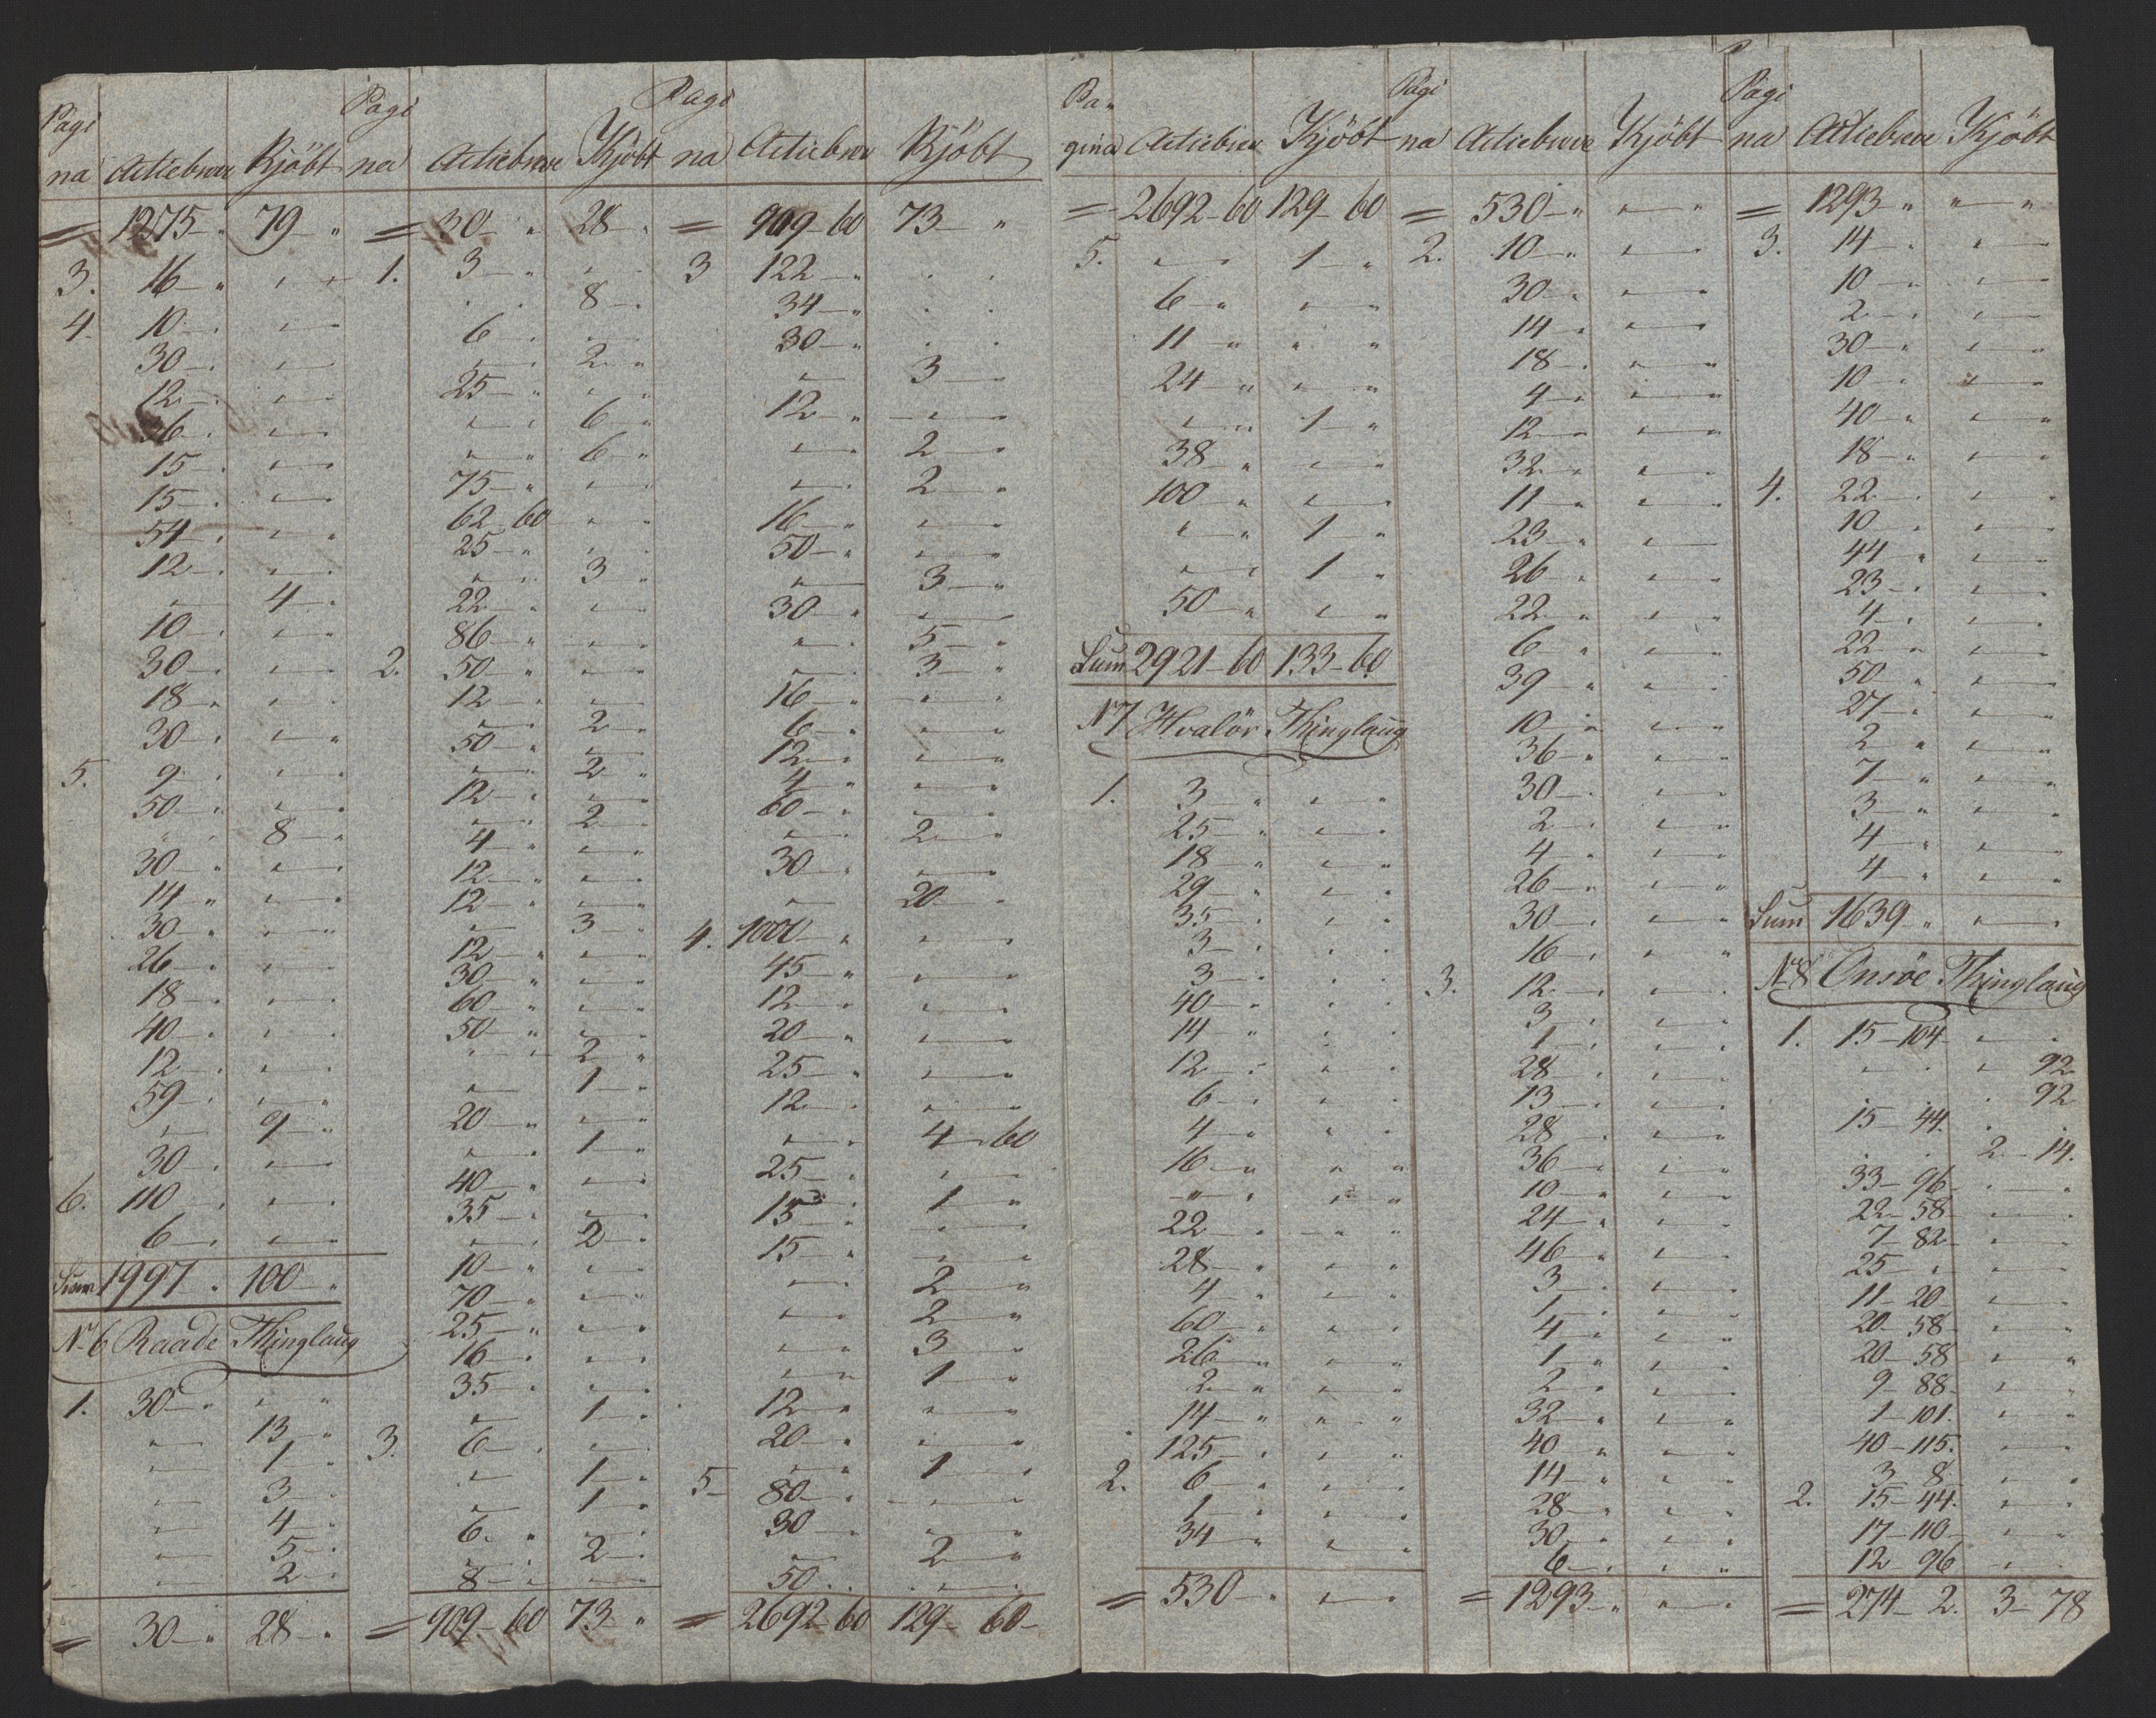 Pagi
na Actiebreve Kjöbt
= 1275 — „ 79 — „
3. 16 — „ „ — „
4. 10 — „ „ — „
30 — „ „ — „
12 — „ „ — „
26 — „ „ — „
15 — „ „ — „
15 — „ „ — „
54 — „ „ — „
12 — „ „ — „
„ — 4 — „
10 — „ „ — „
30 — „ „ — „
18 — „ „ — „
30 — „ „ — „
5. 9 — „ „ — „
50 — „ „ — „
„ „ 8 — „
30 — „ „ — „
14 — „ „ — „
30 — „ „ — „
26 — „ „ — „
18 — „ „ — „
40 — „ „ — „
12 — „ „ — „
59 — „ „ — „
„ — 9 — „
30 — „ „ — „
6. 110 — „ „ — „
6 — „ „ — „
Sum 1997 „ 100 — „
No 6 Raade Thinglaug
1. 30 — „ „ „
„ — 13 — „
„ — 1 — „
„ — 3 — „
„ — 4 — „
„ — 5 — „
„ — 2 — „
= 30 — „ 28 — „
Pagi
na Actiebreve Kjöbt
= 30 — „ 28 — „
1. 3 — „ „ „
„ „ 8 — „
6 — „ „ — „
„ — „ 2 — „
25 — „ „ „
„ — „ 6 — „
„ — „ 6 — „
75 — „ „ — „
62 — 60 „ „
25 — „ „ „
„ — „ 3 — „
22 — „ „ — „
86 — „ „ — „
2. 50 — „ „ — „
12 — „ „ — „
„ — „ 2 — „
50 — „ „ — „
„ — „ 2 — „
12 — „ „ — „
„ — „ 2 — „
4 — „ „ — „
12 — „ „ — „
12 — „ „ — „
„ — „ 3 — „
12 — „ „ — „
30 — „ „ — „
60 — „ „ — „
50 — „ „ — „
„ — „ 2 — „
„ — „ 1 — „
20 — „ „ — „
„ — „ 1 — „
40 — „ „ — „
35 — „ „ — „
„ — „ 2 — „
10 — „ „ — „
70 — „ „ — „
25 — „ „ — „
16 — „ „ — „
35 — „ „ — „
„ — „ 1 — „
3. 6 — „ „ — „
„ — 1 — „
„ — 1 — „
6 — „ „ — „
„ — „ 2 — „
8 — „ „ — „
= 909 — 60 73 — „
Pagi
na Actiebreve Kjöbt
= 909 — 60 73 — „
3 122 — „ „ „
34 — „ „ „
30 — „ „ „
„ — 3 — „
12 — „ „ — „
„ — „ 2 — „
„ — „ 2 — „
16 — „ „ — „
50 — „ „ — „
„ — 3 — „
30 — „ „ — „
„ — „ 5 — „
„ — „ 3 — „
16 — „ „ — „
6 — „ „ — „
12 — „ „ — „
4 — „ „ — „
60 — „ „ — „
„ — „ 2 — „
30 — „ „ — „
„ — 20 — „
4. 1000 — „ „ — „
45 — „ „ — „
12 — „ „ — „
20 — „ „ — „
25 — „ „ — „
12 — „ „ — „
„ — „ 4 — 60
25 — „ „ — „
„ — „ 1 — „
15 — „ „ — „
15 — „ „ — „
„ — „ 2 — „
„ — „ 2 — „
„ — „ 3 — „
„ — „ 1 — „
12 — „ „ — „
20 — „ „ — „
„ — „ 1 — „
5 80 — „ „ — „
30 — „ „ — „
„ — 2 — „
50 „ „ „ — „
= 2692 — 60 129 — 60
Pa„
gina Actiebreve Kjöbt
= 2692 — 60 129 — 60
5. „ — „ 1 — „
6 — „ „ — „
11 — „ „ „
24 — „ „ — „
„ — „ 1 — „
38 — „ „ — „
100 — „ „ — „
„ — „ 1 — „
„ — „ 1 — „
50 — „ „ — „
Sum 2921 — 60 133 — 60
N 7 Hvalör Thinglaug
1. 3 „ „ — „
25 — „ „ — „
18 — „ „ — „
29 — „ „ „
35 — „ „ „
3 — „ „ „
3 — „ „ „
40 — „ „ „
14 — „ „ „
12 — „ „ „
6 — „ „ „
4 — „ „ „
16 — „ „ „
„ — „ „ — „
22 — „ „ — „
28 — „ „ — „
4 — „ „ — „
60 — „ „ — „
26 — „ „ — „
2 — „ „ — „
14 — „ „ — „
125 — „ „ — „
2. 6 — „ „ — „
1 — „ „ — „
34 — „ „ — „
= 530 — „ „ — „
Pagi
na Actiebreve Kjöbt
= 530 — „ „ — „
2. 10 — „ „ — „
30 — „ „ — „
14 — „ „ — „
18 — „ „ — „
4 — „ „ — „
12 — „ „ — „
32 — „ „ — „
11 — „ „ — „
23 — „ „ — „
26 — „ „ — „
22 — „ „ — „
6 — „ „ — „
39 — „ „ — „
10 — „ „ — „
36 — „ „ — „
30 — „ „ — „
2 — „ „ — „
4 — „ „ — „
26 — „ „ — „
30 — „ „ — „
16 — „ „ — „
3. 12 — „ „ — „
3 — „ „ — „
1 — „ „ — „
28 — „ „ — „
13 — „ „ — „
28 — „ „ — „
36 — „ „ — „
10 — „ „ — „
24 — „ „ — „
46 — „ „ — „
3 — „ „ — „
1 — „ „ — „
4 — „ „ — „
1 — „ „ — „
2 — „ „ — „
32 — „ „ — „
40 — „ „ — „
14 — „ „ — „
28 — „ „ — „
30 — „ „ — „
6 — „ „ — „
= 1293 — „ „ — „
Pagi
na Actiebreve Kjöbt
= 1293 — „ „ — „
3. 14 — „ „ — „
10 — „ „ — „
2 — „ „ — „
30 — „ „ — „
10 — „ „ — „
40 — „ „ — „
18 — „ „ — „
4. 22 — „ „ — „
10 — „ „ — „
44 — „ „ — „
23 — „ „ — „
4 — „ „ — „
22 — „ „ — „
50 — „ „ — „
27 — „ „ — „
2 — „ „ — „
7 — „ „ — „
3 — „ „ — „
4 — „ „ — „
4 — „ „ — „
Sum 1639 — „ „ — „
No 8 Onsöe Thinglaug
1. 15 — 104 „ — „
„ — „ „ 92
„ 92
15 — 44. „ „
„ „ 2 — 14.
33 — 96 „ — „
22 — 58 „ — „
7 — 82 „ — „
25 — „ „ — „
11 — 20 „ — „
20 — 58 „ — „
20 — 58 „ — „
9 — 88 „ — „
1 — 101. „ — „
40 — 115. „ — „
3 — 8 „ — „
2. 15 — 44. „ — „
17 — 110 „ — „
12 — 96 „ — „
= 274 — 2. 3 — 78